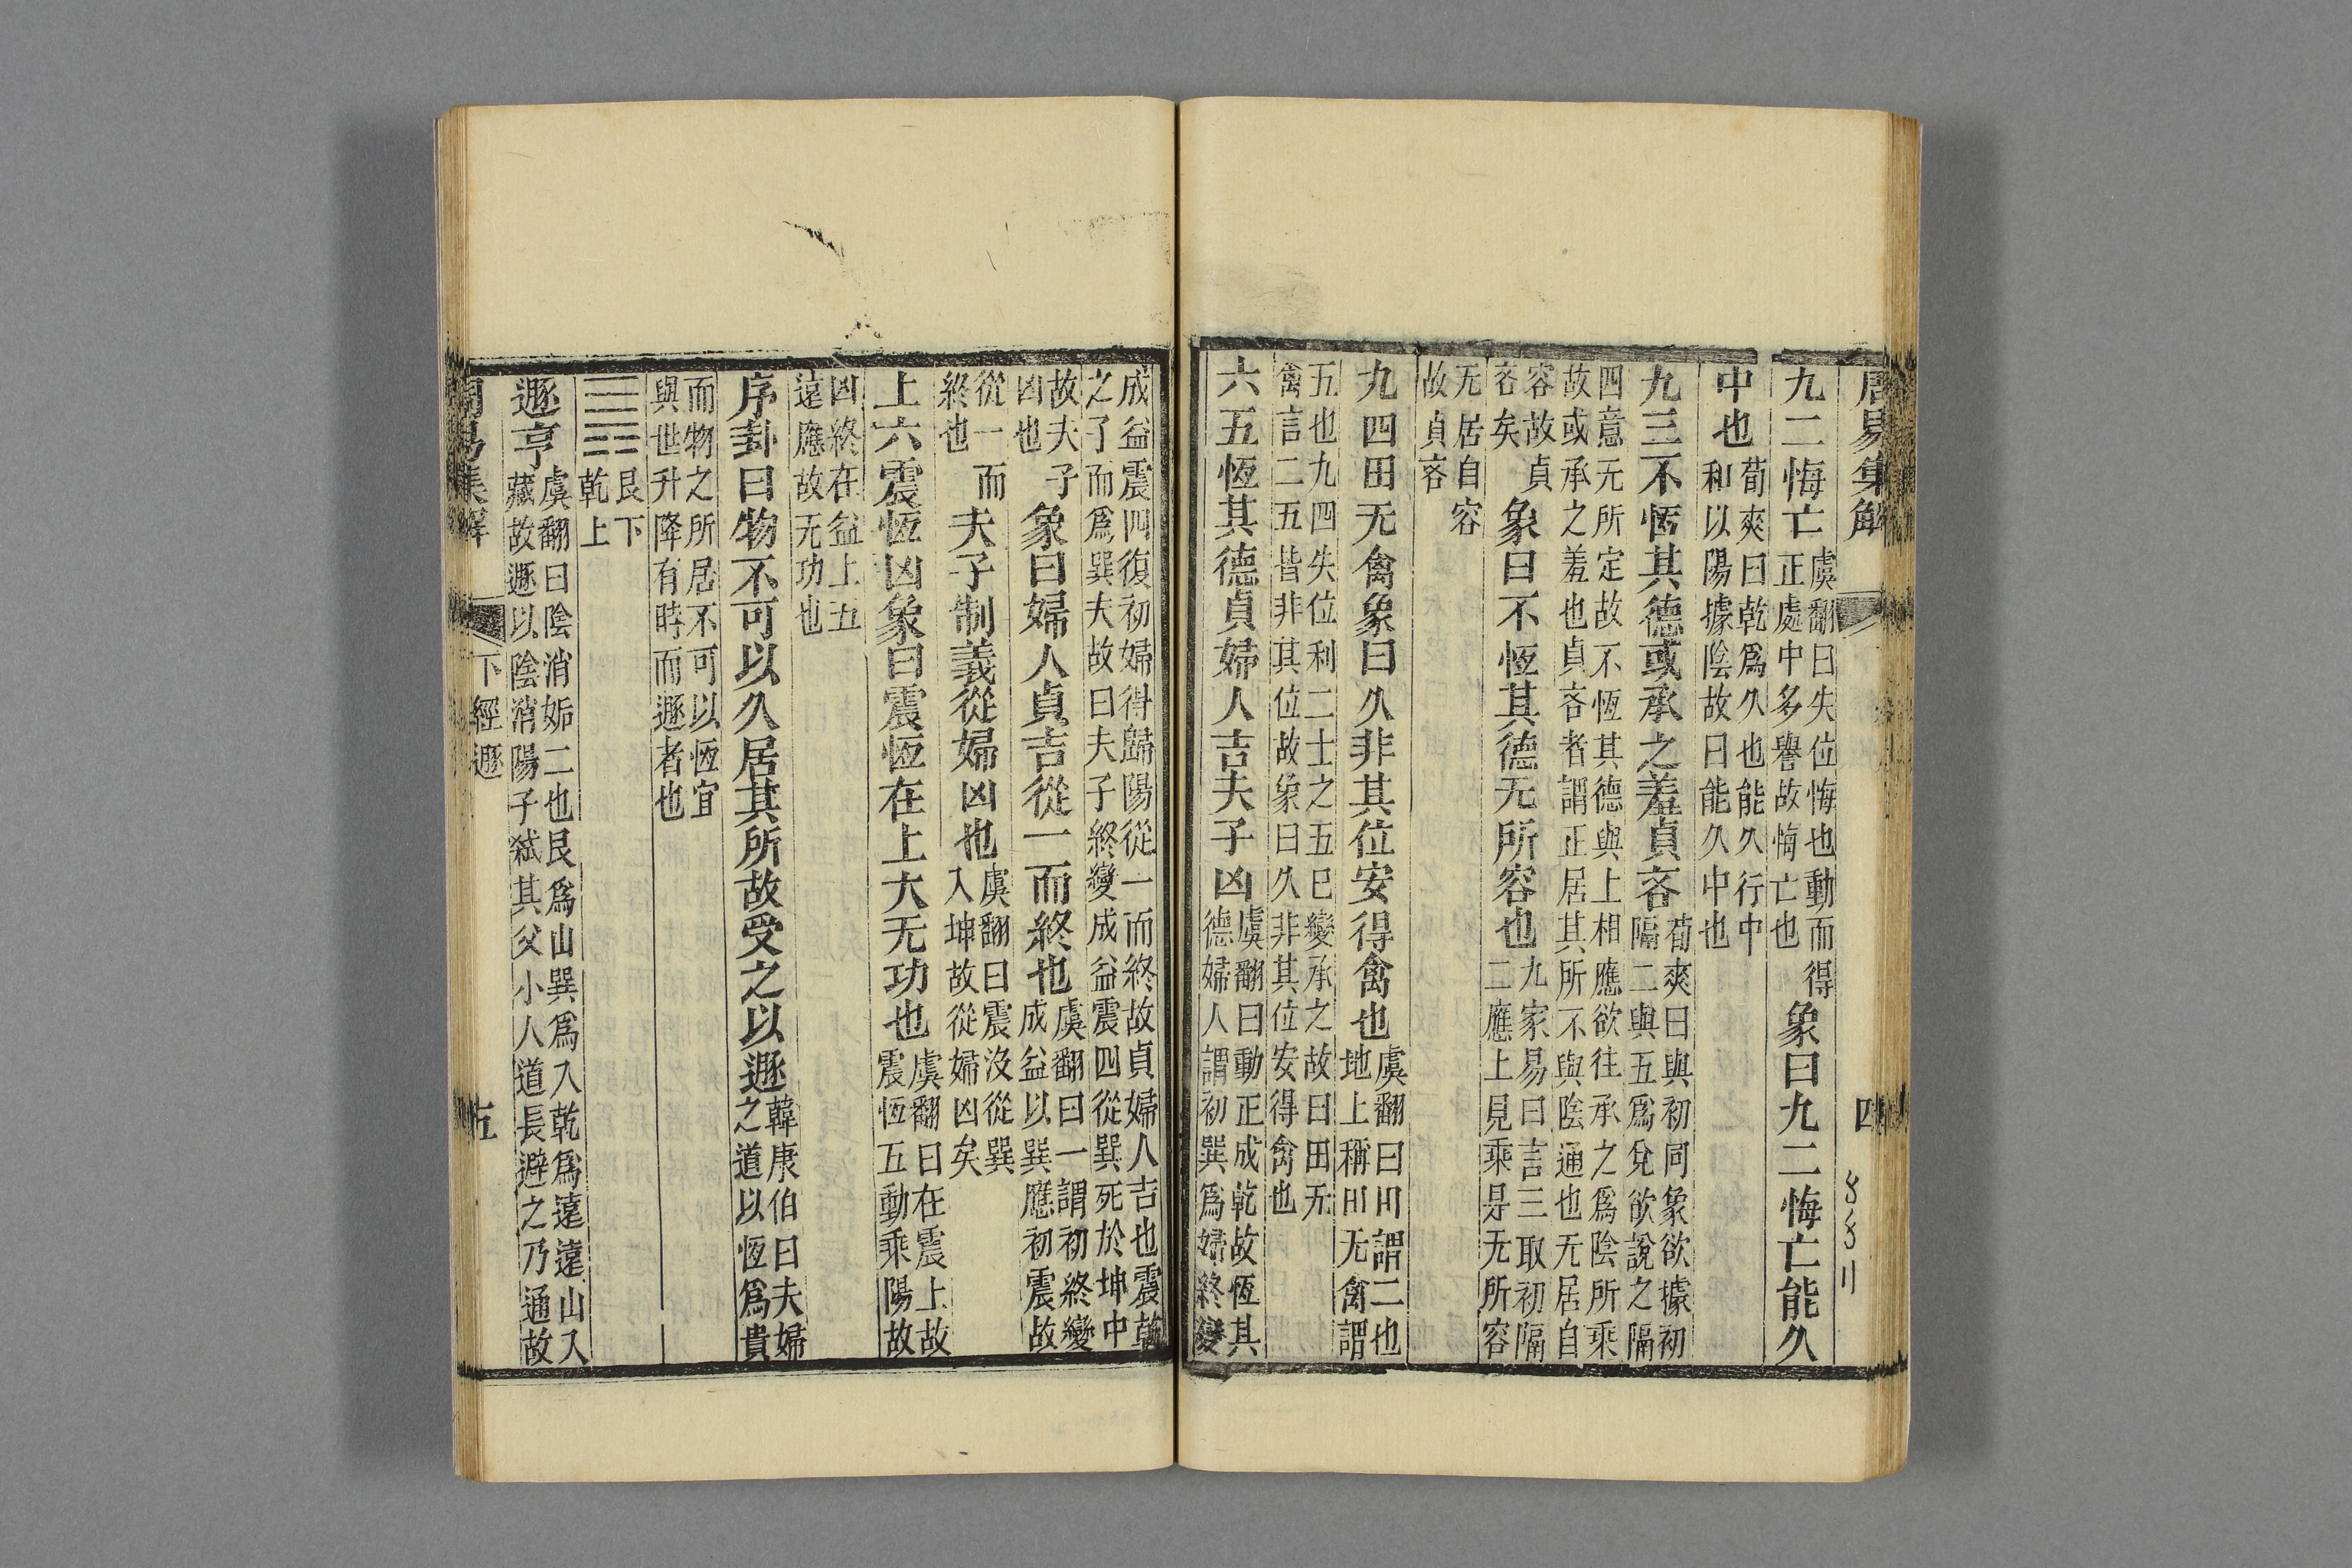 周易集解 四
九二悔亡虞翻曰失位悔也動而得正處中多譽故悔亡也象曰九二悔亡能久
中也荀爽曰乾為久也能久行中和以陽據陰故曰能久中也
九三不恆其德或承之羞貞吝荀爽曰與初同象欲據初隔二與五為兌欲說之隔
四意无所定故不恆其德與上相應欲往承之為陰所乘故或承之羞也貞吝者謂正居其所不與陰通也无居自
容故貞吝矣象曰不恆其德无所容也九家易曰言三取初隔二應上見乘是无所容
无居自容故貞吝
九四田无禽象曰久非其位安得禽也虞翻曰田謂二也地上稱田无禽謂
五也九四失位利二士之五已變承之故曰田无禽言二五皆非其位故象曰久非其位安得禽也
六五恆其德貞婦人吉夫子凶虞翻曰動正成乾故恆其德婦人謂初巽為婦終變
成益震四復初婦得歸陽從一而終故貞婦人吉也震乾之子而為巽夫故曰夫子終變成益震四從巽死於坤中
故夫子凶也象曰婦人貞吉從一而終也虞翻曰一謂初終變成益以巽應初震故
從一而終也夫子制義從婦凶也虞翻曰震沒從巽入坤故從婦凶矣
上六震恆凶象曰震恆在上大无功也虞翻曰在震上故震恆五動乘陽故
凶終在益上五遠應故无功也
序卦曰物不可以久居其所故受之以遯韓康伯曰夫婦之道以恆為貴
而物之所居不可以恆宜與世升降有時而遯者也
艮下乾上
遯亨虞翻曰陰消姤二也艮為山巽為入乾為遠遠山入藏故遯以陰消陽子弒其父小人道長避之乃通故
周易集解 下經遯 五